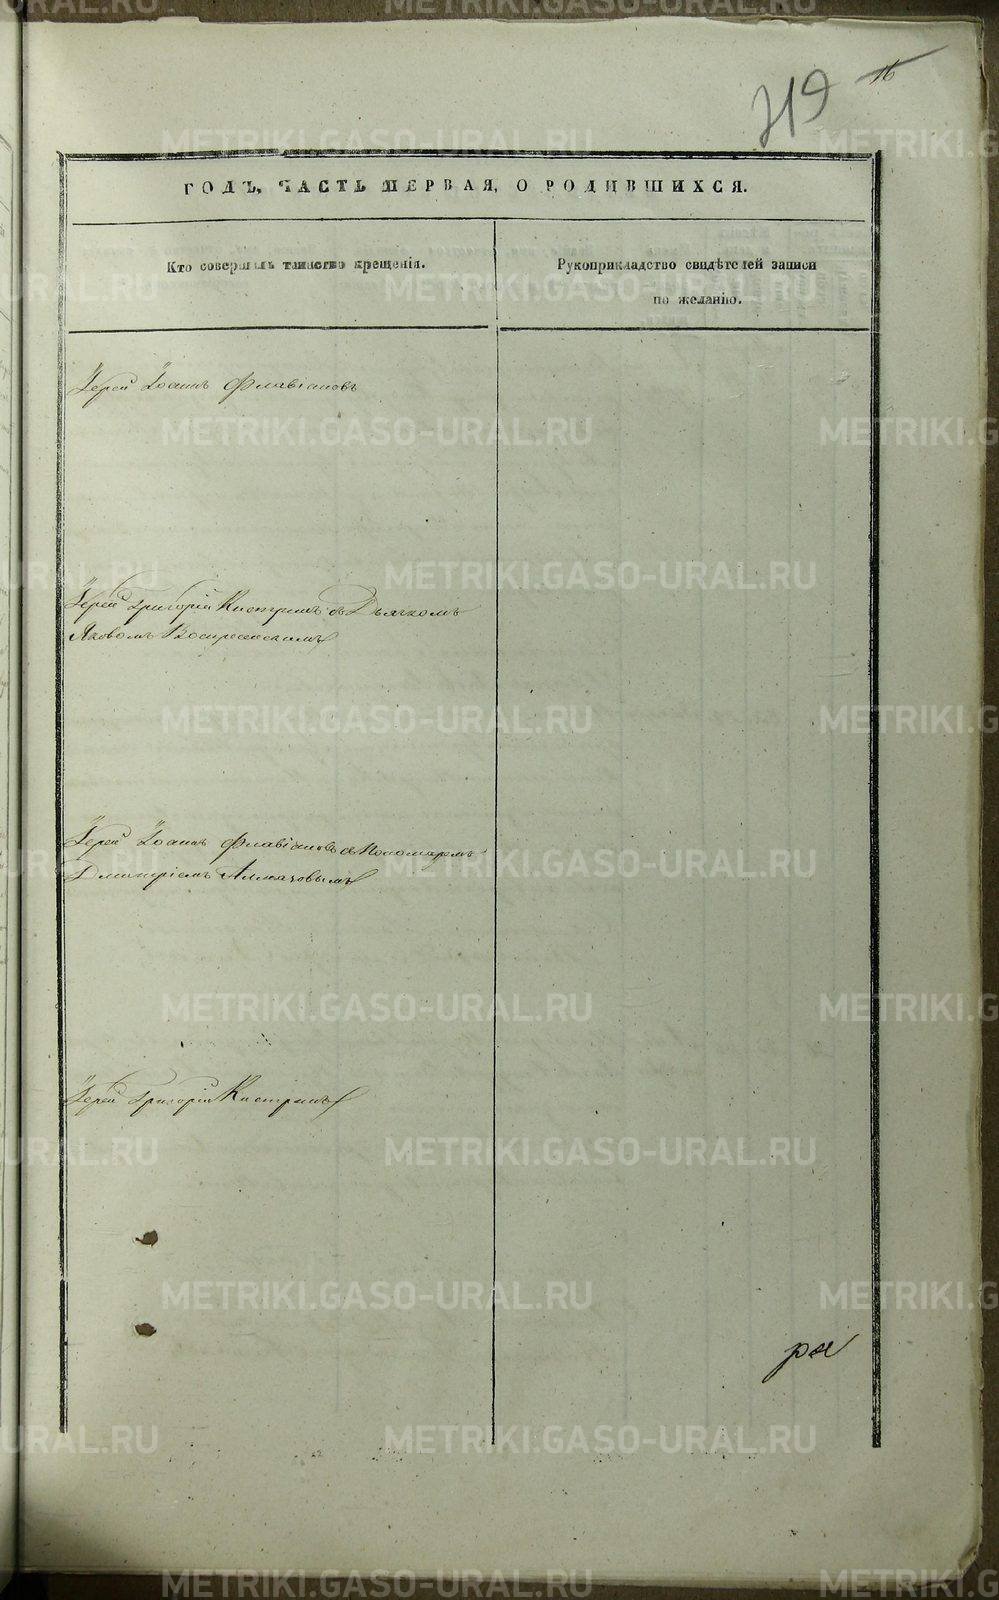 16
719
ГОДЪ, ЧАСТЬ ПЕРВАЯ, О РОДИВШИХСЯ.
Кто совершалъ таинство крещенія.
Рукоприкладство свидѣтелей записи
по желанію.
Іерей Іоаннъ Флавіановъ
Іерей Григорій Кистринъ съ Дьячкомъ
Яковомъ Воскресенскимъ
Іерей Іоаннъ Флавіановъ съ Пономаремъ
Дмитріемъ Алмазовымъ
Іерей Григорій Кистринъ
METRIKI.GASO-URAL.RU